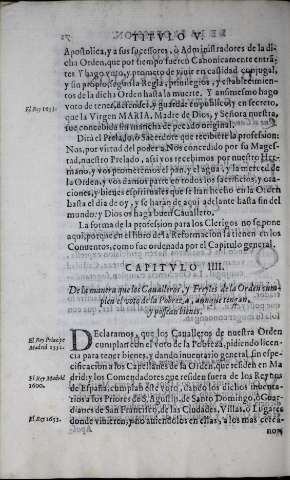 TITVLO V.
Apostolica, y a sus sucessores, ò Administradores de la di-
cha Orden, que por tiempo fueren Canonicamente entrã-
tes Y hago voto, y prometo de viuir en castidad conjugal,
y sin propio, segun la Regla, priuilegios, y establecimien-
tos de la dicha Orden hasta la muerte. Y ansimesmo hago
El Rey 1653.
voto de tener, defender, y guardar en publico, y en secreto,
que la Virgen MARIA, Madre de Dios, y Señora nuestra,
fue concebida sin mancha de pecado original.
Dirà el Prelado, ò Sacerdote que recibiere la profession:
Nos, por virtud del poder a Nos concedido por su Mages-
tad, nuestro Prelado, assi vos recebimos por nuestro Her-
mano, y vos prometemos el pan, y el agua, y la merced de
la Orden, y vos damos parte en todos los sacrificios, y ora-
ciones, y bienes espirituales que se han hecho en la Orden
hasta el dia de oy, y se haràn de aqui adelante hasta fin del
mundo: y Dios os haga buen Cauallero.
La forma de la profession para los Clerigos no se pone
aqui, porque en el libro de la Reformacion la tienen en los
Conuentos, como fue ordenada por el Capitulo general.
CAPITVLO IIII.
De la manera que los Caualleros, y Freyles de la Orden cum-
plen el voto de la Pobreza, aunque tengan,
y possean bienes.
DEclaramos, que los Caualleros de nuestra Orden
El Rey Principe
cumplan con el voto de la Pobreza, pidiendo licen-
Madrid 1552.
cia para tener bienes, y dando inuentario general, sin espe-
cificacion a los Capellanes de la Orden, que residen en Ma
El Rey Madrid
drid: y los Comendadores que residen fuera de los Reynos
1600.
de España, cumplan este voto, dando los dichos inuenta-
rios a los Priores de S. Agustin, de Santo Domingo, ò Guar-
dianes de San Francisco, de las Ciudades, Villas, ò Lugares
El Rey 1653.
donde viuieren, y no auiendolos en ellas, a los mas cerca-
nos,